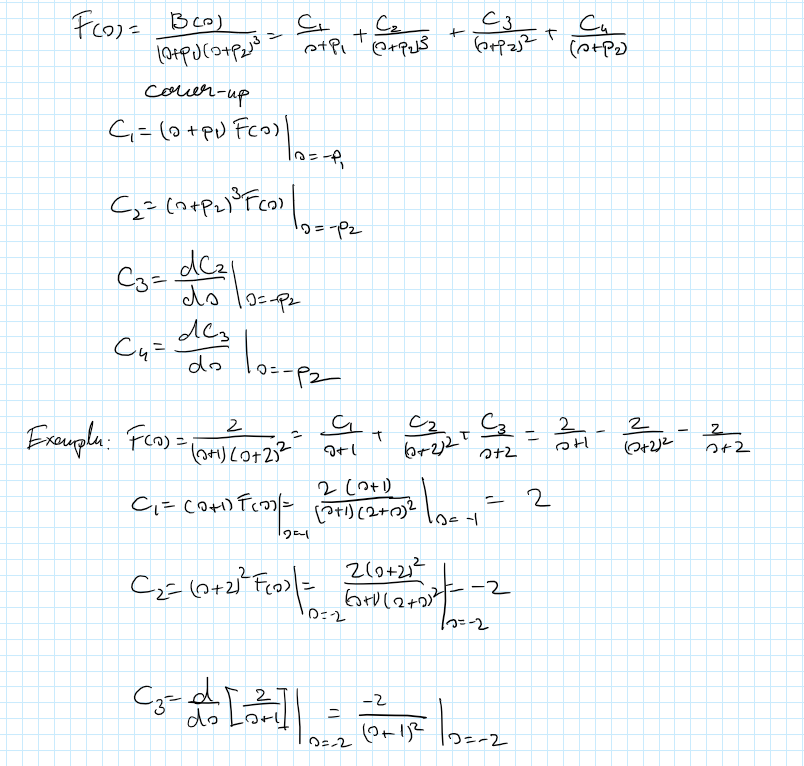 F(s) = B(s)/((s+p₁)(s+p₂)³) = C₁/(s+p₁) + C₂/(s+p₂)³ + C₃/(s+p₂)² + C₄/(s+p₂)
cover-up
C₁ = (s+p₁) F(s) |s=-p₁
C₂ = (s+p₂)³ F(s) |s=-p₂
C₃ = dC₂/ds |s=-p₂
C₄ = dC₃/ds |s=-p₂
Example: F(s) = 2/((s+1)(s+2)²) = C₁/(s+1) + C₂/(s+2)² + C₃/(s+2) = 2/(s+1) - 2/(s+2)² - 2/(s+2)
C₁ = (s+1) F(s) |s=-1 = 2(s+1)/((s+1)(2+s)²) |s=-1 = 2
C₂ = (s+2)² F(s) |s=-2 = 2(s+2)²/((s+1)(2+s)²) |s=-2 = -2
C₃ = d/ds [2/(s+1)] |s=-2 = -2/(s+1)² |s=-2